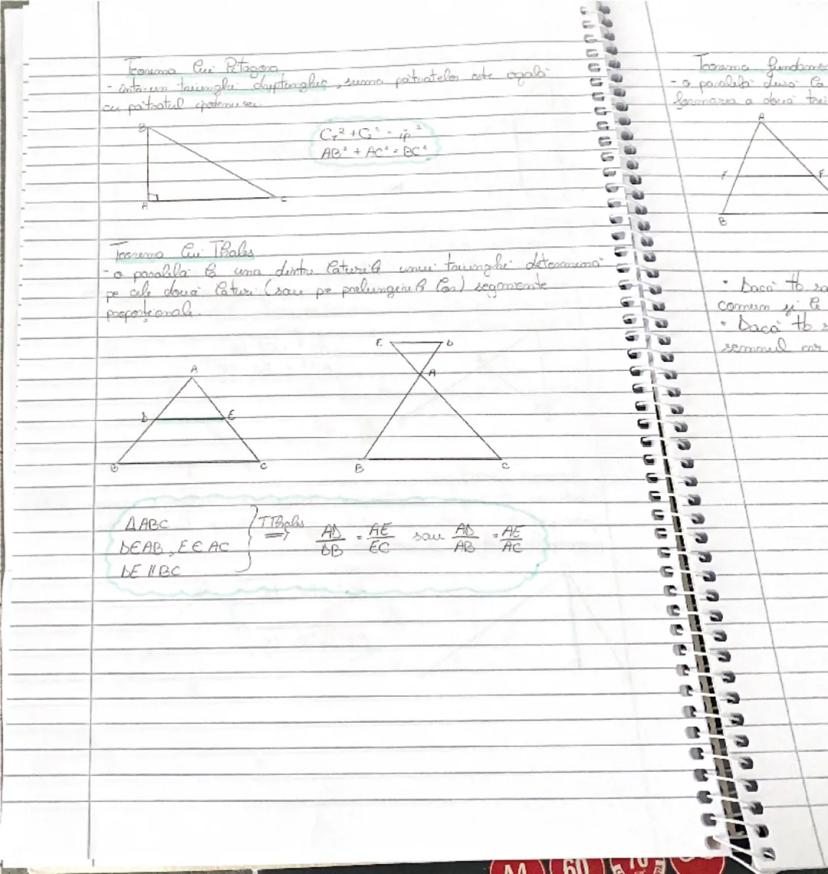 Teorema lui Pitagora
- într-un triunghi dreptunghic, suma pătratelor este egală
cu pătratul ipotenusei.
B
A
C
C₁² + C₂² = ip²
AB² + AC² = BC²
Teorema lui Thales
- o paralelă la una dintre laturile unui triunghi determină
pe cele două laturi (sau pe prelungirile lor) segmente
proporționale.
A
D
E
B
C
E
D
A
B
C
ΔABC
D∈AB, E∈AC
DE ∥ BC
TThales
⇒
AD/DB = AE/EC sau AD/AB = AE/AC
Teorema fundame
- o paralelă dusă la
formarea a două tri
A
E
F
B
• Dacă tb să
comun și
• Dacă tb
semnul
60
70